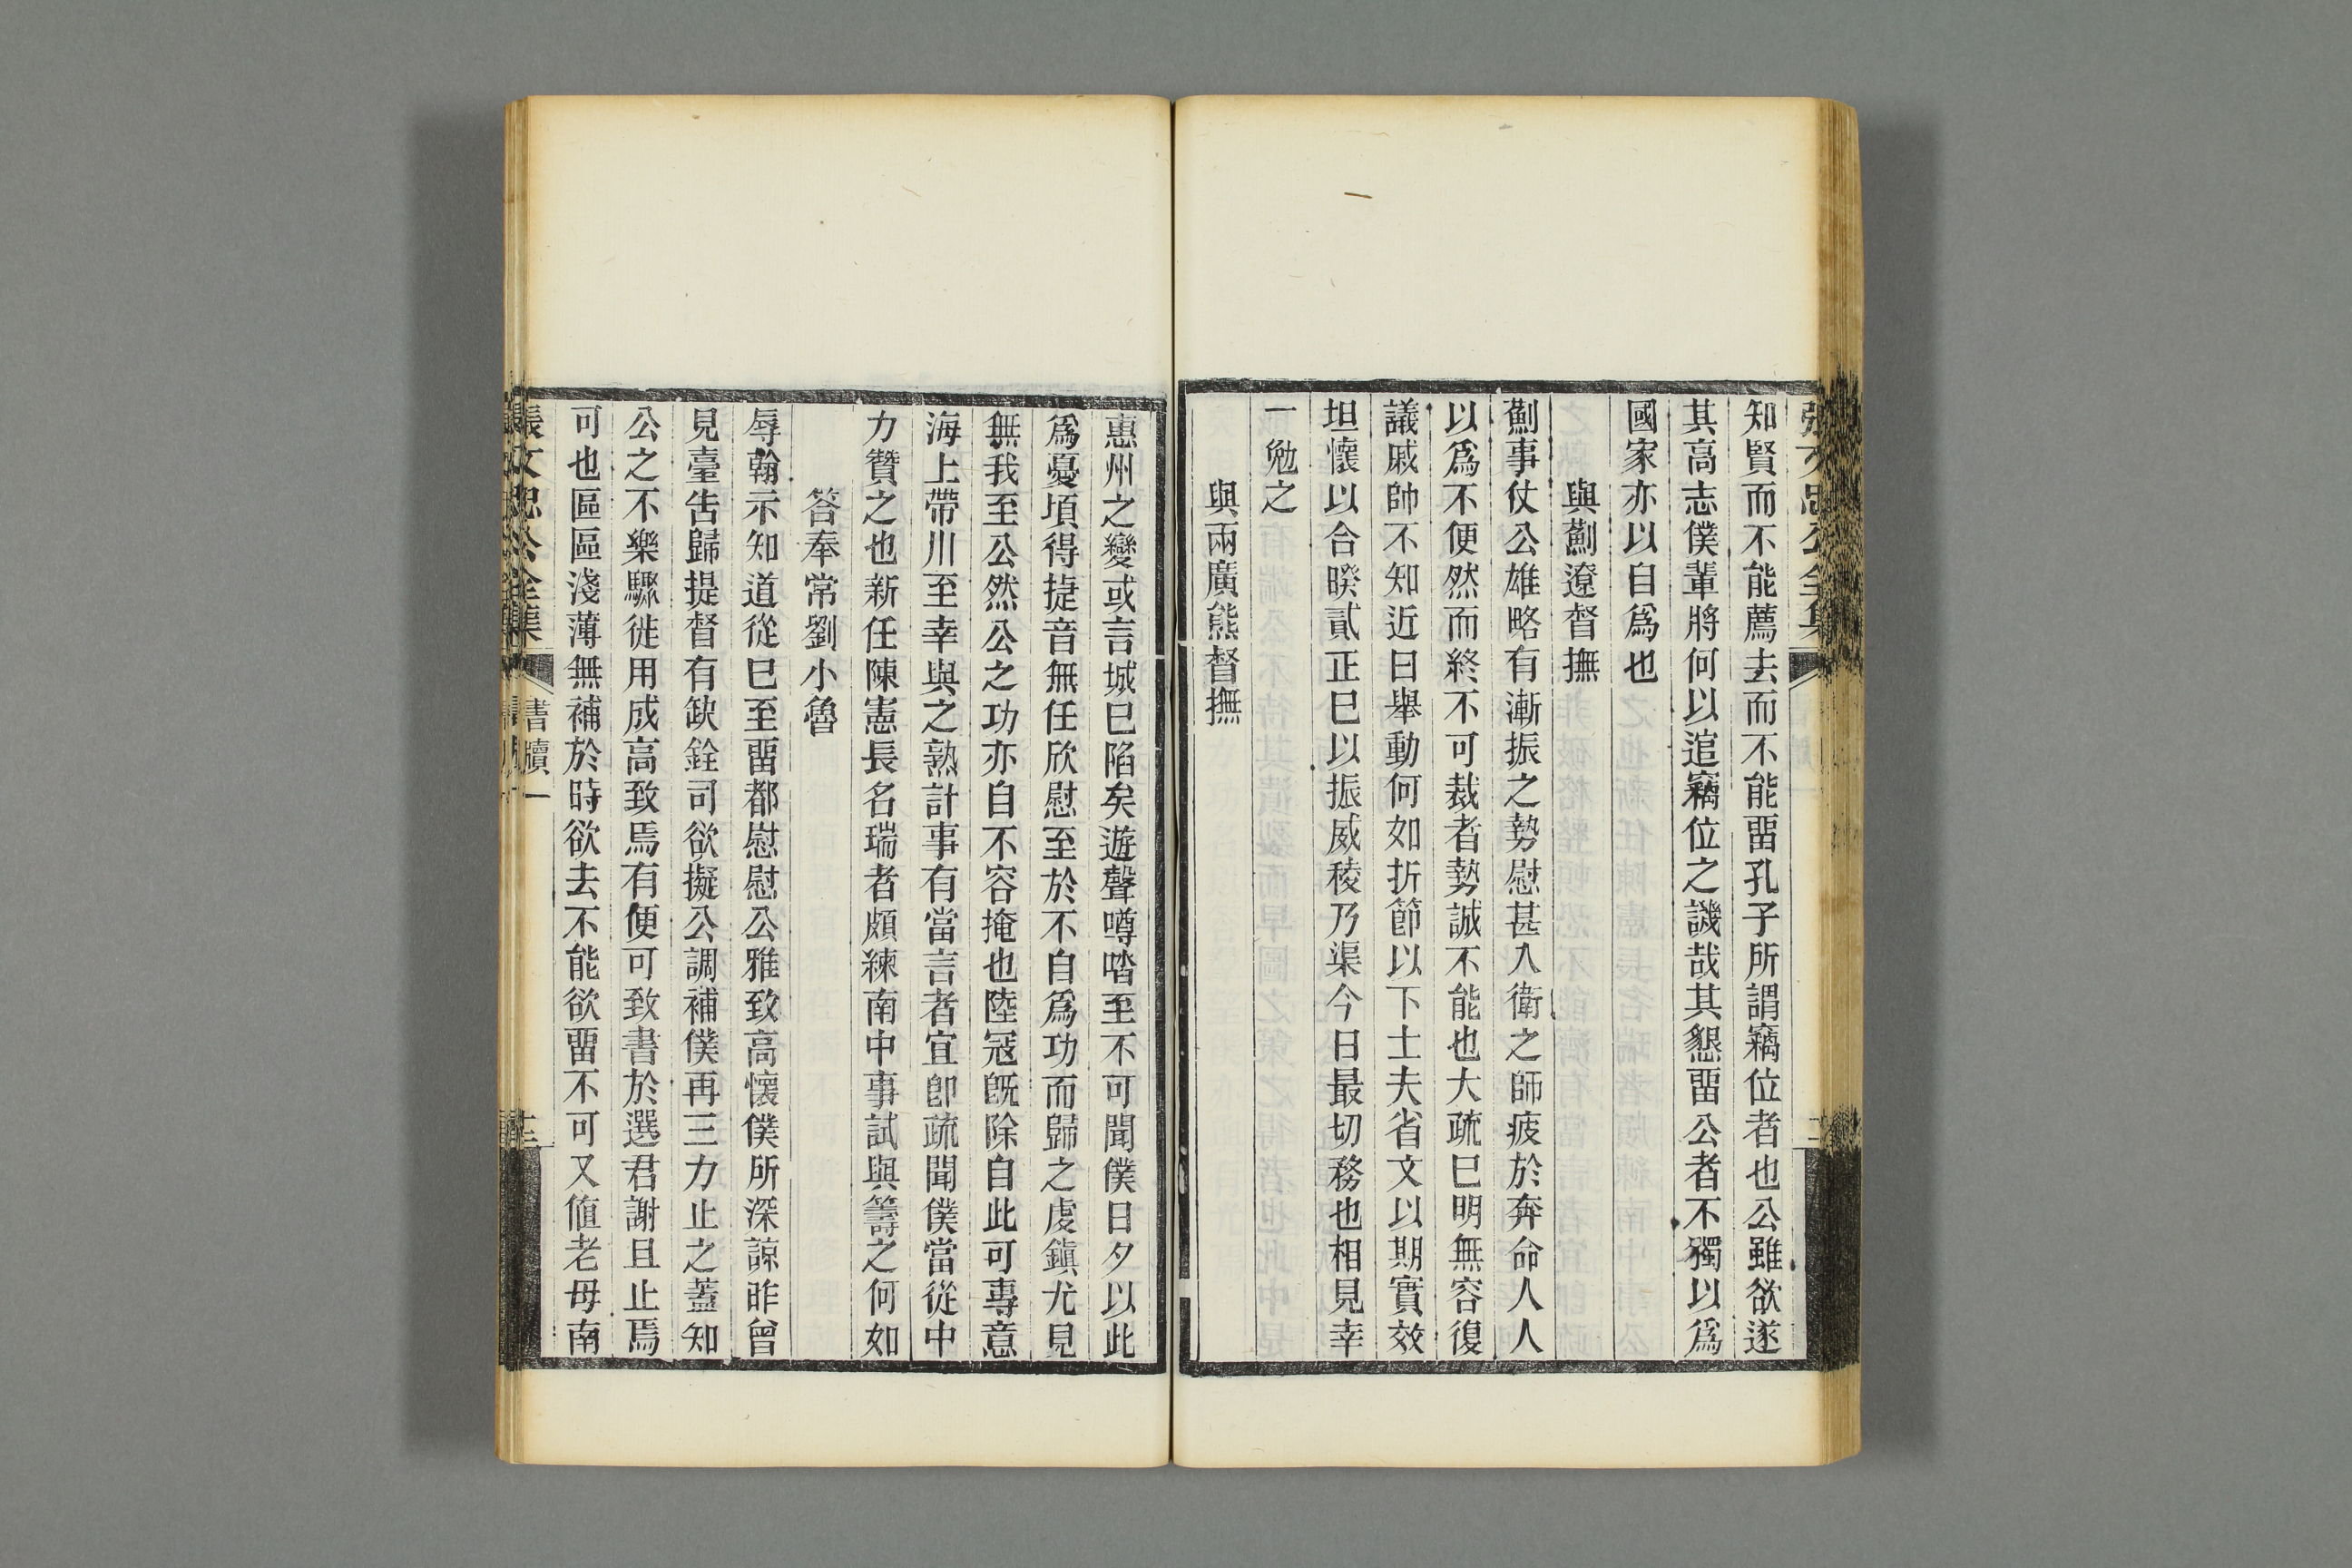 知賢而不能薦去而不能畱孔子所謂竊位者也公雖欲遂
其高志僕輩將何以逭竊位之譏哉其懇畱公者不獨以爲
國家亦以自爲也
與薊遼督撫
薊事仗公雄略有漸振之勢慰甚入衛之師疲於奔命人人
以爲不便然而終不可裁者勢誠不能也大疏已明無容復
議戚帥不知近日舉動何如折節以下士夫省文以期實效
坦懷以合暌貳正已以振威稜乃渠今日最切務也相見幸
一勉之
與兩廣熊督撫
惠州之變或言城已陷矣遊聲噂喒至不可聞僕日夕以此
爲憂頃得捷音無任欣慰至於不自爲功而歸之虔鎭尤見
無我至公然公之功亦自不容掩也陸冦旣除自此可專意
海上帶川至幸與之熟計事有當言者宜卽疏聞僕當從中
力贊之也新任陳憲長名瑞者頗練南中事試與籌之何如
答奉常劉小魯
辱翰示知道從已至畱都慰慰公雅致高懷僕所深諒昨曾
見臺吿歸提督有缺銓司欲擬公調補僕再三力止之蓋知
公之不樂驟徙用成高致焉有便可致書於選君謝且止焉
可也區區淺薄無補於時欲去不能欲畱不可又値老母南
張文忠公全集
書牘一
十三